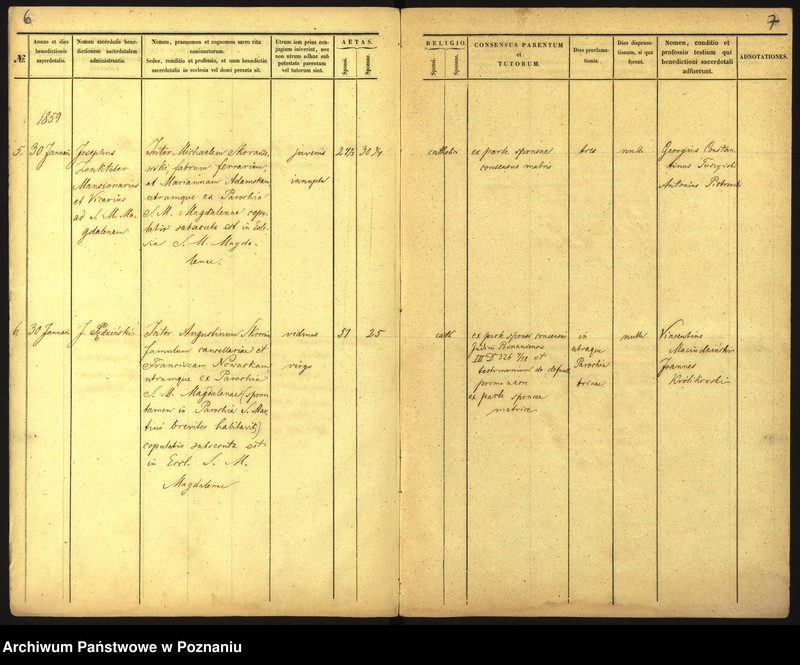 6
№
Annus et dies
benedictionis
sacerdotalis.
Nomen sacerdotis bene-
dictionem sacerdotalem
administrantis.
Nomen, praenomen et cognomen sacro ritu
coniunctorum.
Sedes, conditio et professio, et num benedictio
sacerdotalis in ecclesia vel domi peracta sit.
Utrum iam prius con-
jugium inierint, nec
non utrum adhuc sub
potestate parentum
vel tutorum sint.
AETAS.
Sponsi.
Sponsae.
1859
5.
30 Januarii
Josephus
Mansionarius
et Vicarius
ad S. M. Ma-
gdalenam
Inter Michaelem
fabrum ferrarium
et Mariannam Adamska
utrumque ex Parochia
S. M. Magdalenae copu-
latio subsecuta est in Eccle-
sia S. M. Magda-
lenae.
juvenis
innupta
30
6.
30 Januarii
J.
Inter Augustinum
famulum cancellariae et
Franciscam Nowacka
utrumque ex Parochia
S. M. Magdalenae (sponsa
tamen in Parochia S. Mar-
tini breviter habitavit)
copulatio subsecuta est
in Eccl. S. M.
Magdalenae
viduus
virgo
51
25
7
RELIGIO.
Sponsi.
Sponsae.
CONSENSUS PARENTUM
et
TUTORUM.
Dies proclama-
tionis.
Dies dispensa-
tionum, si qua
forent.
Nomen, conditio et
professio testium qui
benedictioni sacerdotali
adfuerunt.
ADNOTATIONES.
ex parte sponsae
consensus matris
tres
nulle
Georgius Constan
tinus
Antonius Piotrowski
cath
ex parte sponsi consensus
III D 326 et
testimonium de
ex parte sponsae
in
utraque
Parochia
trinae
nulle
Vincentius
Joannes
Królikowski
Archiwum Państwowe w Poznaniu